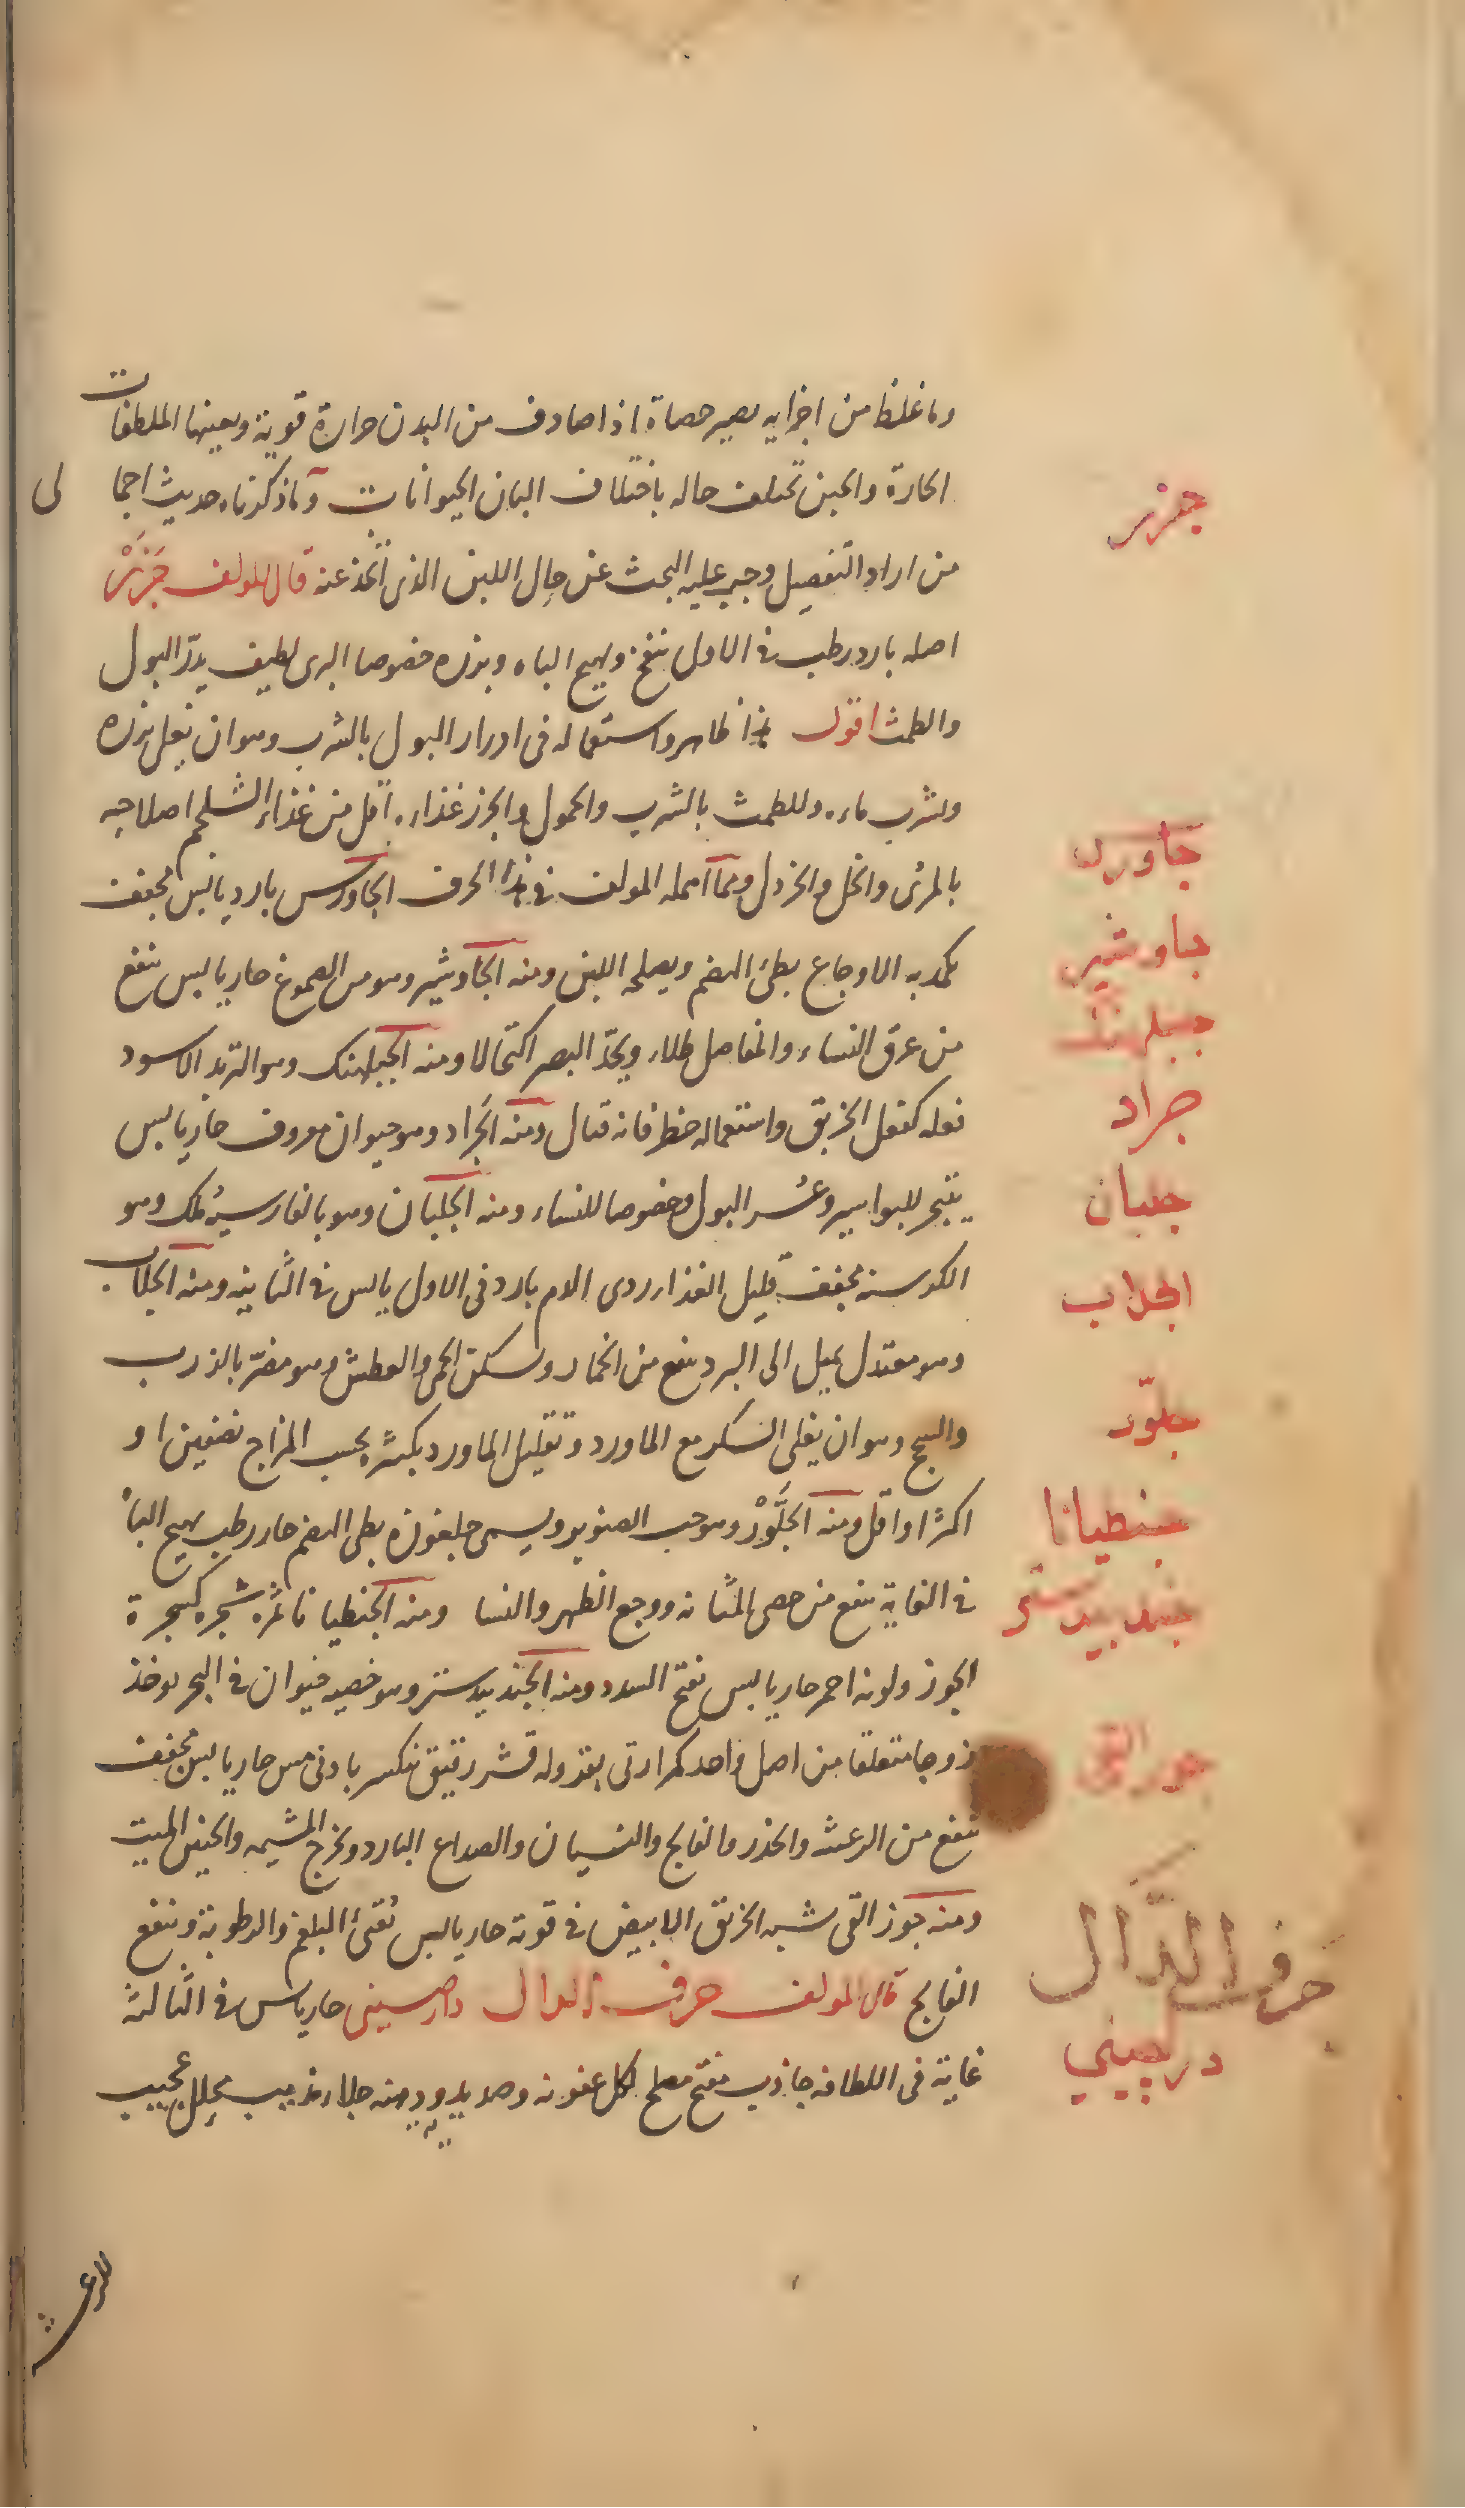 وما غلظ من اجزايه يصير حصاة اذا صادف من البدن حرارة قوية ويعينها الملطفات
الحارة والجبن تختلف حاله باختلاف البان الحيوانات وما ذكرناه حديث اجما لى
جزر
من اراد التفصيل وجب عليه البحث عن حال اللبن الذى اتخذ عنه قال المولف جَزَرْ
اصله بارد رطب فى الاول ينفخ ويهيج الباه وبزره خصوصا البرى لطيف يدرّ البول
والطمث اقول هذا ظاهر واستعماله فى ادرار البول بالشرب وهو ان يغلى بزره
ويشرب ماءه وللطمث بالشرب والحمول والجزر غذاءه اقل من غذاء الشلجم اصلاحه
جاورس
بالمرى والخل والخردل ومما اهمله المولف فى هذا الحرف الجاورس بارد يابس مجفف
جاوشير
يكمد به الاوجاع بطئ الهضم ويصلحه اللبن ومنه الجاوشير وهو من الصموغ حار يابس ينفع
جبلهنك
من عرق النساء والمفاصل طلاء ويحدّ البصر اكتحالا ومنه الجبلهنك وهو التربد الاسود
جراد
فعله كفعل الخربق واستعماله خطر فانه قتال ومنه الجَراد وهو حيوان معروف حار يابس
جلبان
يتبخر للبواسير وعسُر البول وخصوصا للنساء ومنه الجلبان وهو بالفارسية ملك وهو
الجلاب
الكرسنه مجفف قليل الغذاء ردى الدم بارد فى الاول يابس فى الثانيه ومنه الجلاب
وهو معتدل يميل الى البرد ينفع من الخمار ويسكن الحمى والعطش وهو مضرّ بالذرب
جلوّز
والسحج وهو ان يغلى السكر مع الماورد وتقليل الماورد يكثره بحسب المزاج نصفين او
جنطيانا
اكثر او اقل ومنه الجلَّوْز وهو حب الصنوبر ويسمى جلغوزه بطى الهضم حار رطب يهيج الباه
جندبيدستر
فى الغاية ينفع من حصى المثانه ووجع الظهر والنسا ومنه الجنطيانا ثمرة شجره كشجرة
الجوز ولونه احمر حار يابس يفتح السدد ومنه الجندبيدستر وهو خصيه حيوان فى البحر يوخذ
جوز القى
زوجا متعلقا من اصل واحد كمرارتى بقر وله قشر رقيق ينكسر بادنى مس حار يابس مجفف
ينفع من الرعشه والخدر والفالج والنسيان والصداع البارد ويخرج المشيمه والجنين الميت
ومنه جوز القى شبه الخربق الابيض فى قوته حار يابس يُقئ البلغم والرطوبة وينفع
حرف الدَّال
الفالج قال المولف حرف الدال دارصينى حار يابس فى الثالثة
درصيني
غاية فى اللطافه جاذب مفتح مصلح لكل عفونه وصديديه ودهنه جلاء مذيب محلل عجيب
للرعشه